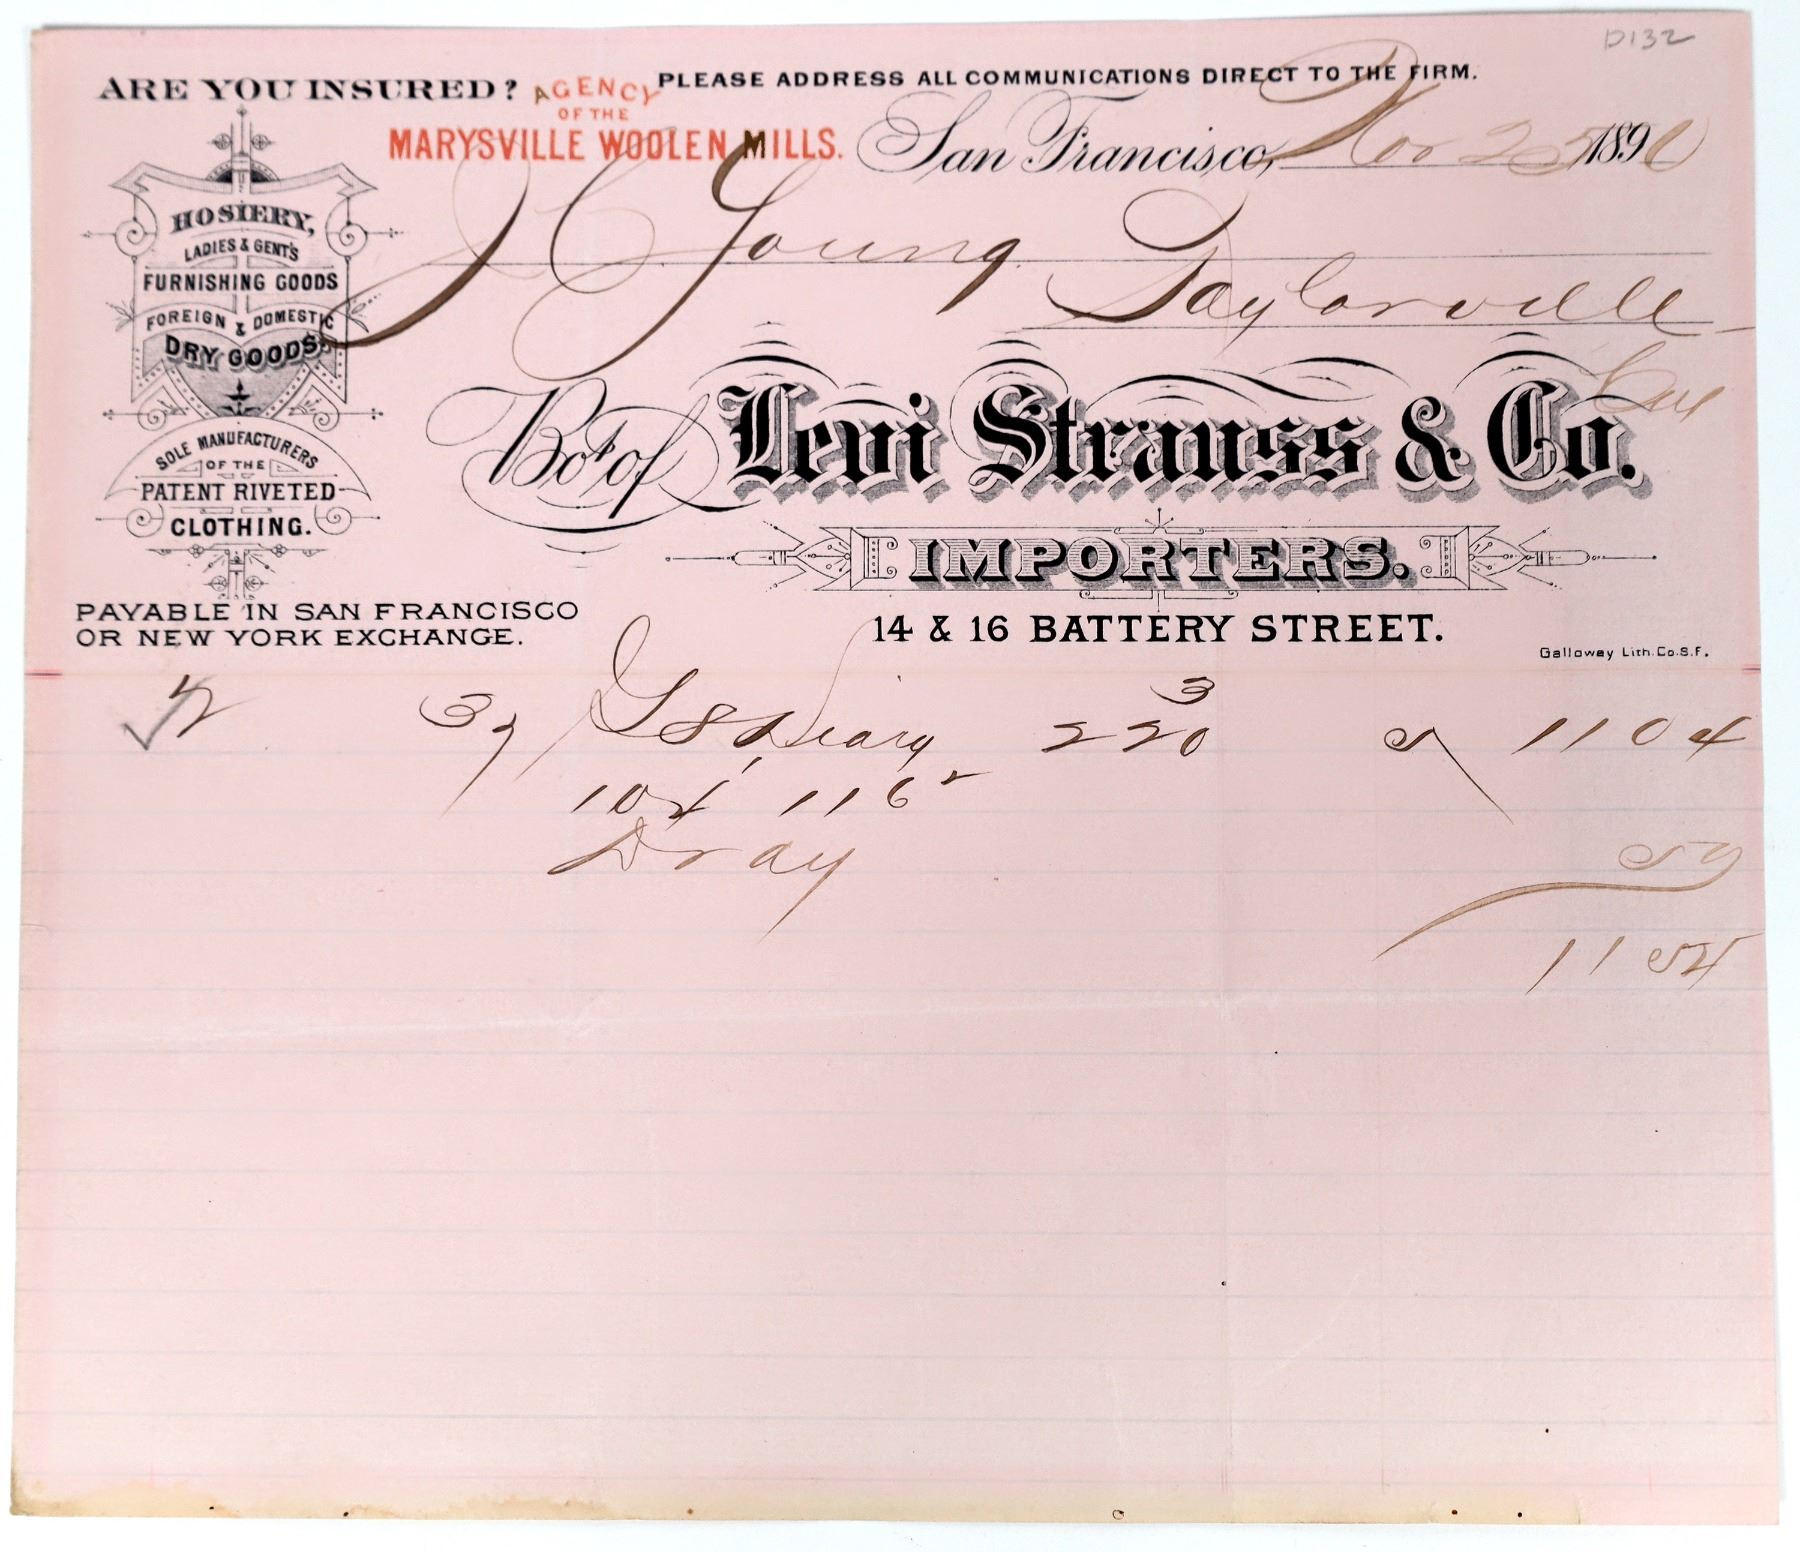 D132
ARE YOU INSURED?
AGENCY
OF THE
MARYSVILLE WOOLEN MILLS.
PLEASE ADDRESS ALL COMMUNICATIONS DIRECT TO THE FIRM.
San Francisco, Nov 25 1890
J C Young
Taylorville
Cal
HOSIERY,
LADIES & GENT'S
FURNISHING GOODS
FOREIGN & DOMESTIC
DRY GOODS.
SOLE MANUFACTURERS
OF THE
PATENT RIVETED
CLOTHING.
PAYABLE IN SAN FRANCISCO
OR NEW YORK EXCHANGE.
Bot of Levi Strauss & Co.
IMPORTERS.
14 & 16 BATTERY STREET.
Galloway Lith. Co. S.F.
220 3 5 1104
104 116 2
Dray 50
1154